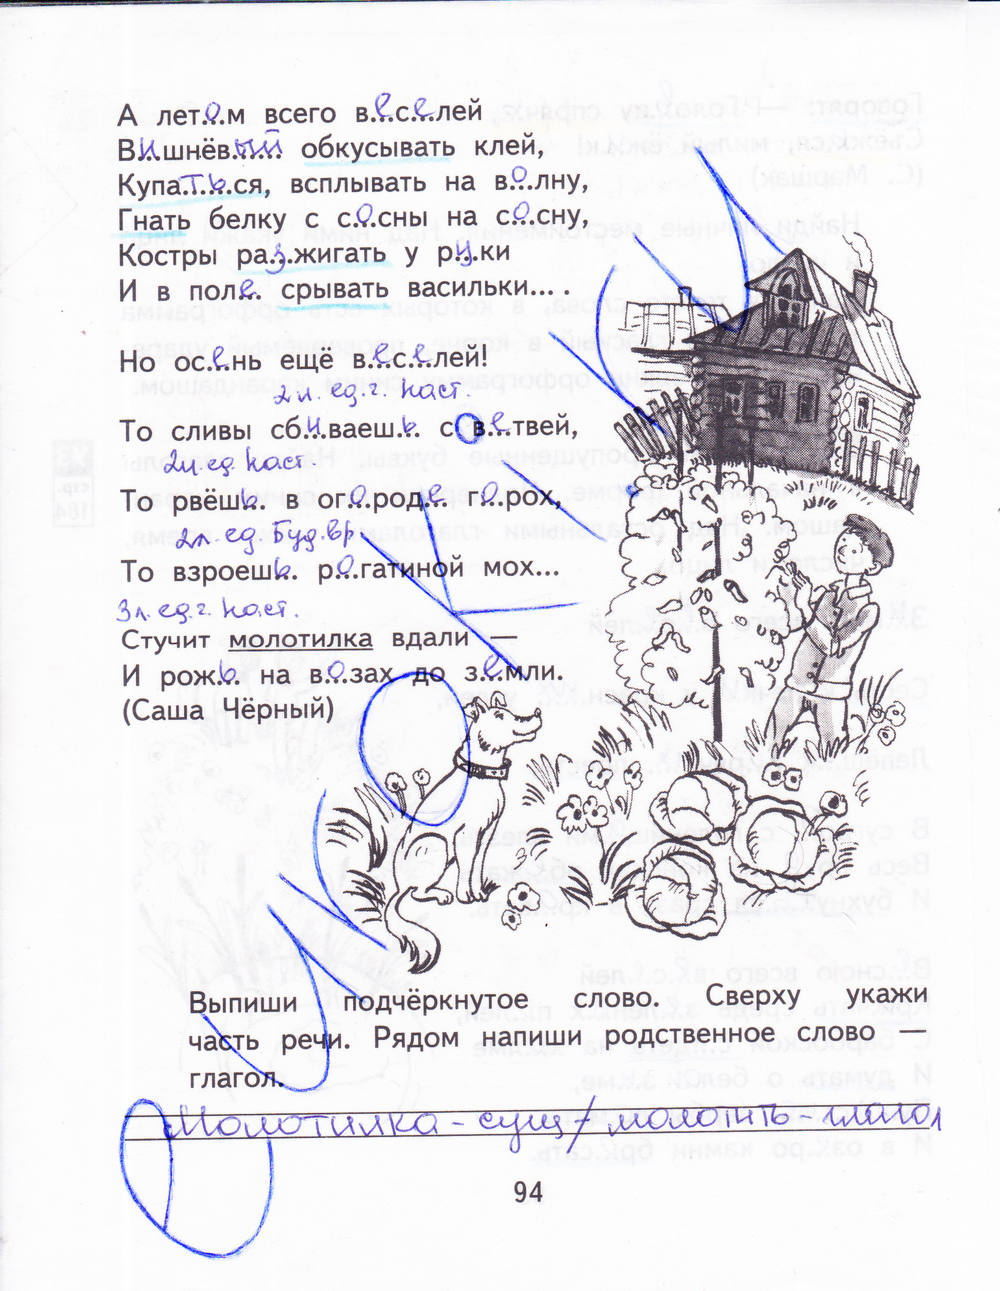 А летом всего веселей
Вишнёвый обкусывать клей,
Купаться, всплывать на волну,
Гнать белку с сосны на сосну,
Костры разжигать у руки
И в поле срывать васильки... .
Но осень ещё веселей!
2л. ед.ч. наст.
То сливы сбиваешь с ветвей,
2л. ед. наст.
То рвёшь в огороде горох,
2л. ед. Буд.вр
То взроешь рогатиной мох...
3л. ед.ч. наст.
Стучит молотилка вдали —
И рожь на возах до земли.
(Саша Чёрный)
Выпиши подчёркнутое слово. Сверху укажи
часть речи. Рядом напиши родственное слово —
глагол.
Молотилка - сущ/ молотить - глагол
94